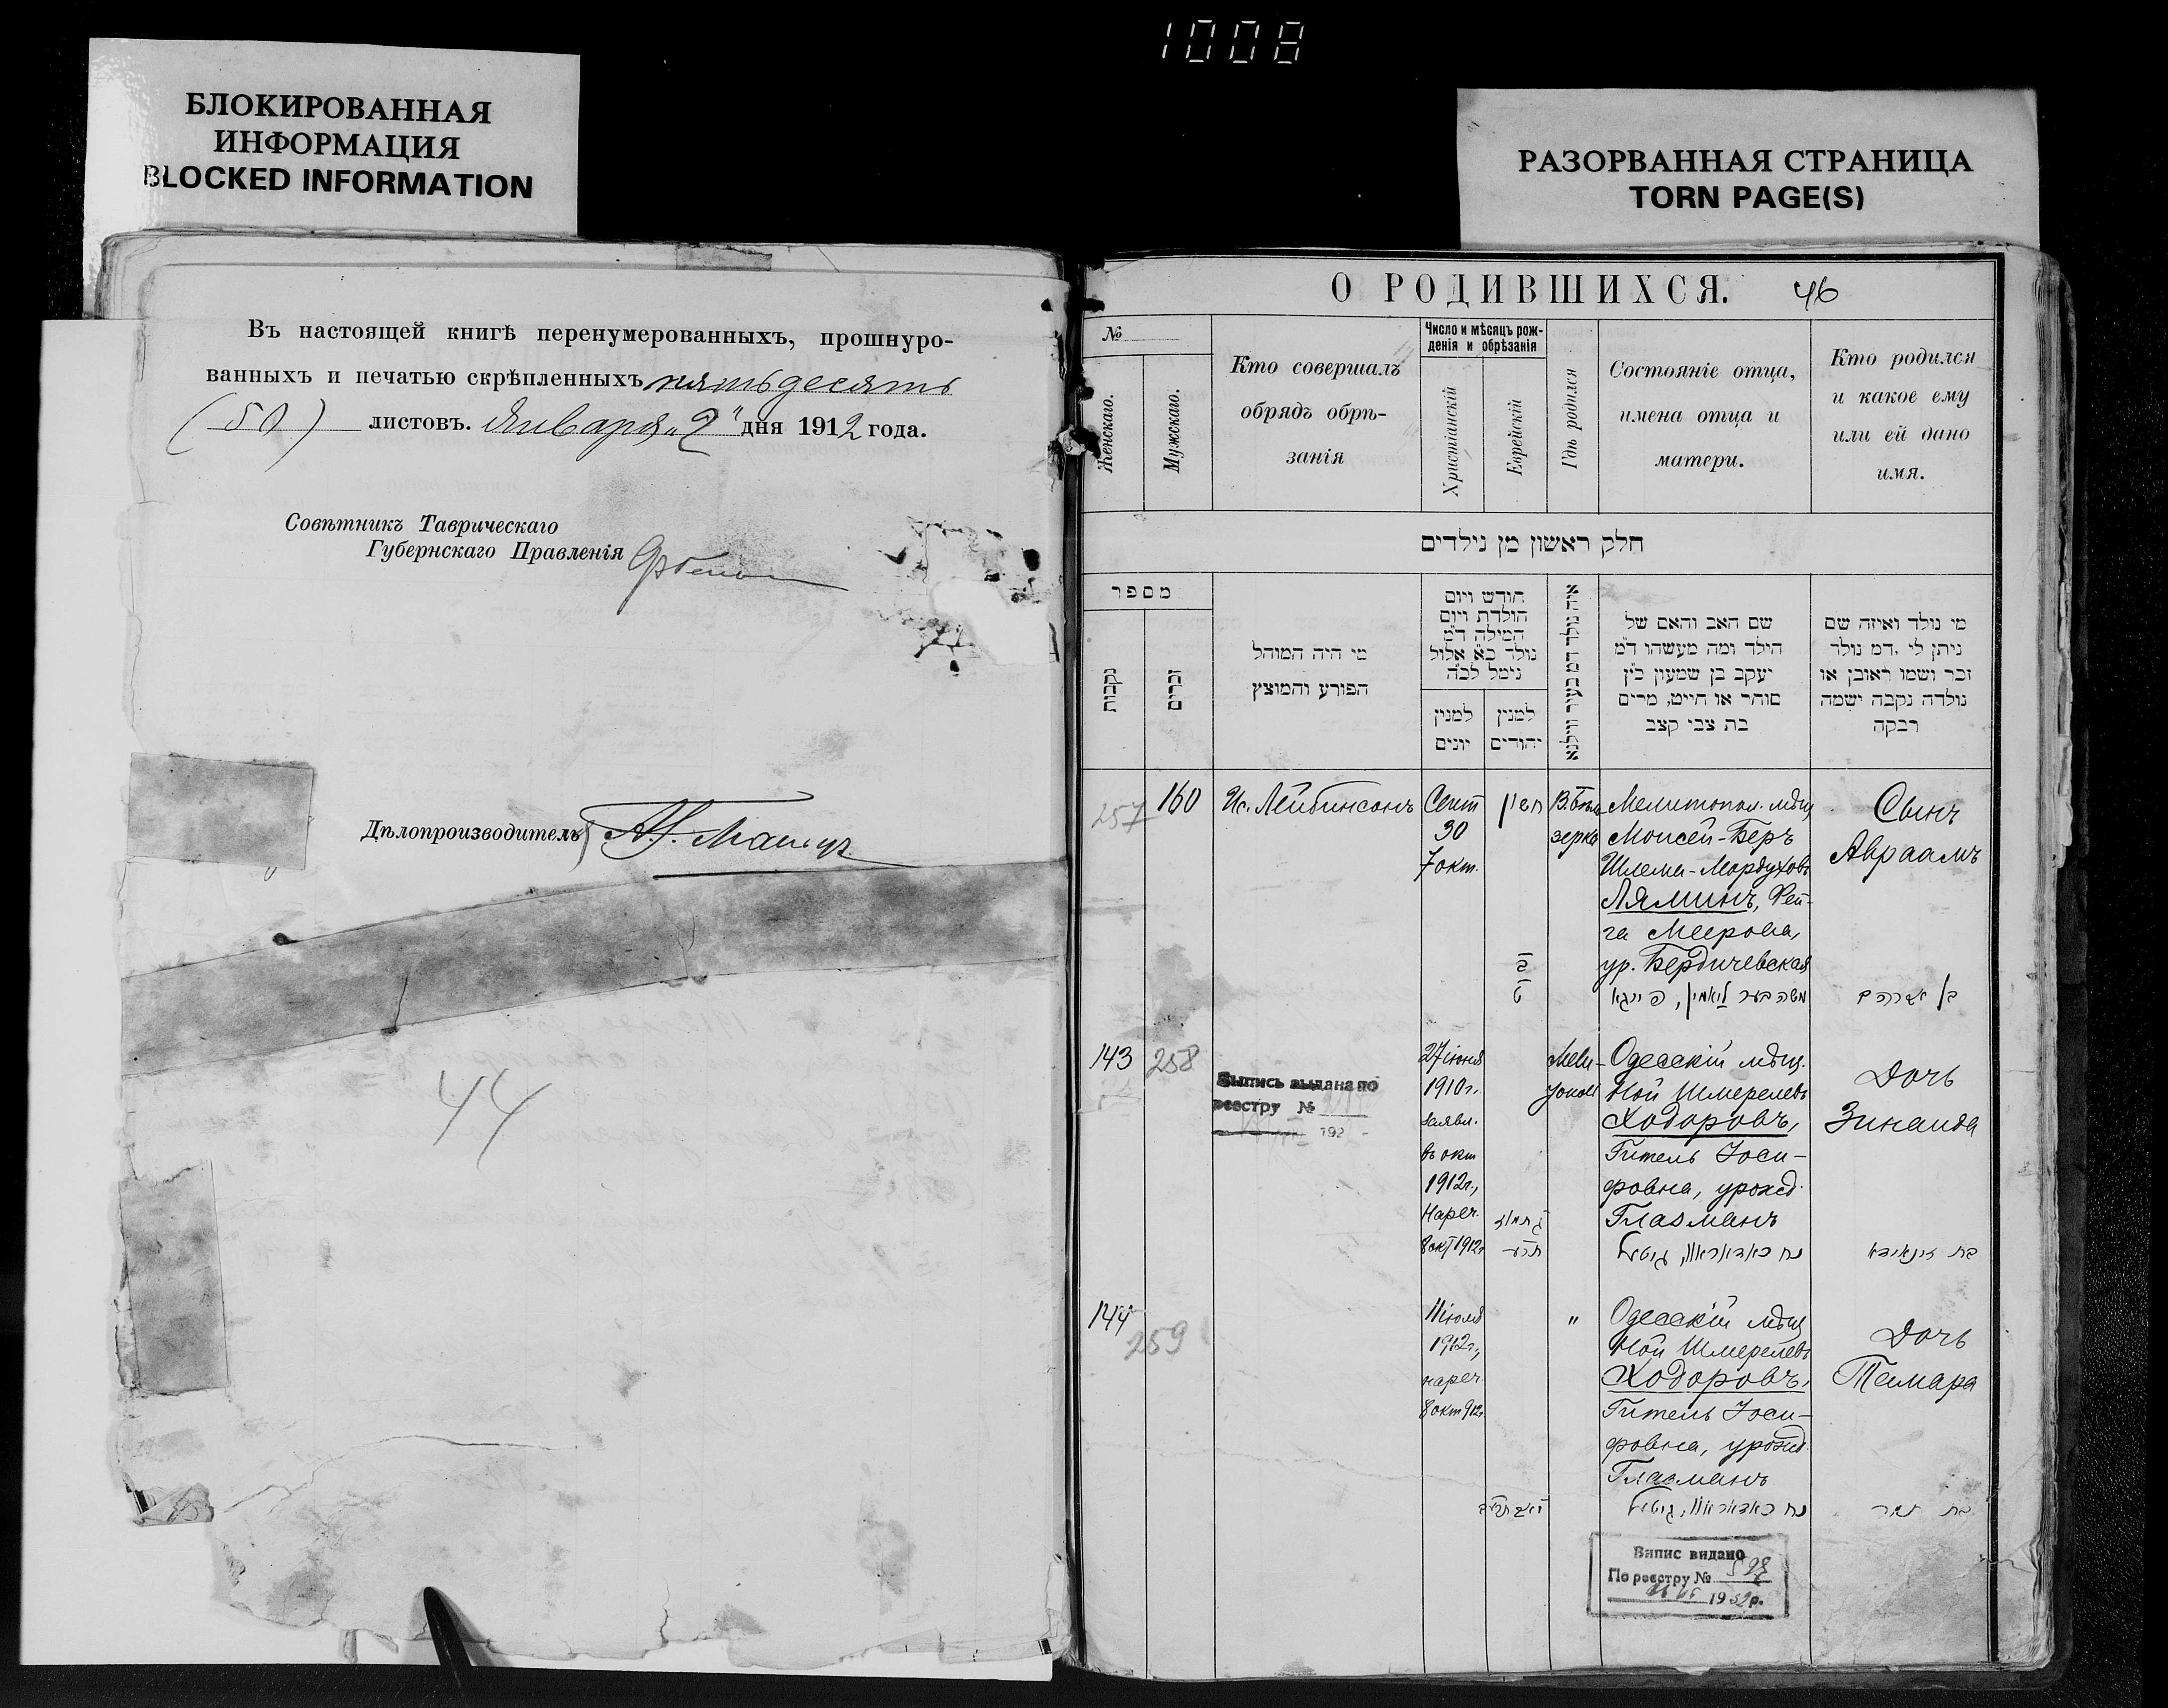 1008
БЛОКИРОВАННАЯ
ИНФОРМАЦИЯ
BLOCKED INFORMATION
РАЗОРВАННАЯ СТРАНИЦА
TORN PAGE(S)
Въ настоящей книгѣ перенумерованныхъ, прошнуро-
ванныхъ и печатью скрѣпленныхъ пятьдесять
(50) листовъ. Января „2" дня 1912 года.
Совѣтникъ Таврическаго
Губернскаго Правленія
Дѣлопроизводитель
44
О РОДИВШИХСЯ. 46
№
Женскаго.
Мужскаго.
Кто совершалъ
обрядъ обрѣ-
занія
Число и мѣсяцъ рож-
денія и обрѣзанія
Христіанскій
Еврейскій
Гдѣ родился
Состояніе отца,
имена отца и
матери.
Кто родился
и какое ему
или ей дано
имя.
חלק ראשון מן נילדים
מספר
נקבות
זכרים
מי היה המוהל
הפורע והמוצץ
חודש ויום
הולדת ויום
המילה ד״מ
נולד כ״א אלול
נימל לכ״ה
למנין
יונים
למנין
יהודים
איה נולד דמ בעיר ווילנא
שם האב והאם של
הילד ומה מעשהו ד״מ
יעקב בן שמעון כ״ץ
סוחר או חייט, מרים
בת צבי קצב
מי נולד ואיזה שם
ניתן לי .דמ נולד
זכר ושמו ראובן או
נולדה נקבה ישמה
רבקה
257
160
Ис. Лейбинсонъ
Сент
30
7 окт.
חשון
В. Бѣло
зерка
Мелитопол. мѣщ
Моисей-Беръ
Шлема-Мордуховъ
Ляминъ, Фей-
га Меерова,
ур. Бердичевская
משה בער ליאמין, פייגא
Сынъ
Авраамъ
בן אברהם
143
258
Выпись выдана по
реестру №
192
27 іюня
1910 г.
заявл.
въ окт
1912 г.,
нареч.
8 окт 1912 г
Мели-
тополь
Одесскій мѣщ.
Ной Шмерелевъ
Ходоровъ,
Гитель Іоси-
фовна, урожд.
Глазманъ
Дочь
Зинаида
בת זינאידא
144
259
11 іюля
1912 г.,
нареч.
8 окт 912 г
"
Одесскій мѣщ
Ной Шмерелевъ
Ходоровъ,
Гитель Іоси-
фовна, урожд.
Глазманъ
Дочь
Тамара
בת תמר
Випис видано
По реєстру № 528
19 р.